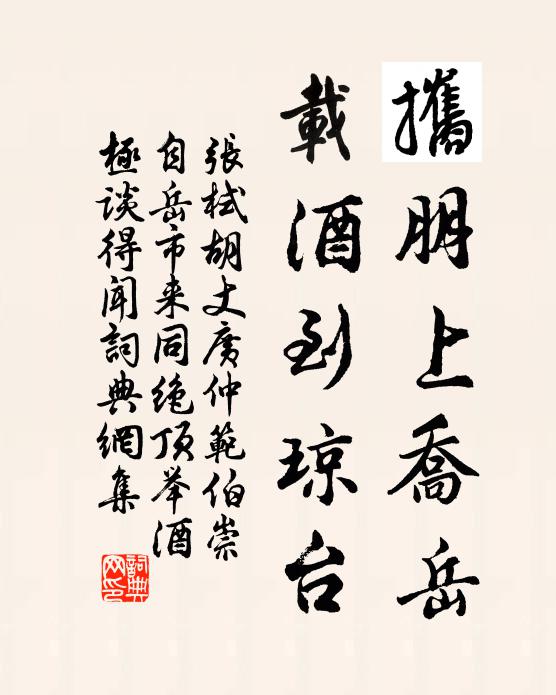 攜朋上喬岳
載酒到琼台
張栻胡丈廣仲範伯崇
自岳市来同绝顶举酒
極谈得闻詞典網集
詞典网印